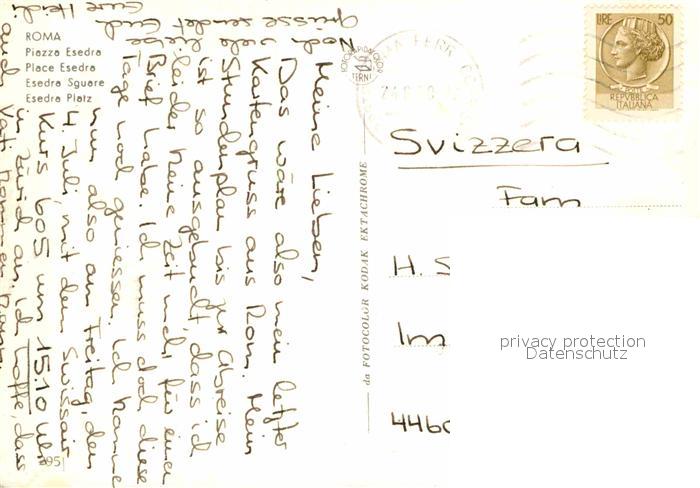 ROMA
Piazza Esedra
Place Esedra
Esedra Square
Esedra Platz
Meine Lieben,
Das wäre also mein letzter
Kartengruss aus Rom. Mein
Stundenplan bis zur Abreise
ist so ausgebucht, dass ich
leider keine Zeit mehr für einen
Brief habe. Ich muss doch diese
Tage noch geniessen. Ich komme
nun also am Freitag, den
4. Juli, mit dem Swissair
Kurs 605 um 15.10 Uhr
in Zürich an. Ich hoffe, dass
auch Vati kommen kann.
Noch viele liebe
Grüsse sendet Euch
Eure Heidi
da FOTOCOLOR KODAK EKTACHROME
TERNI
LIRE 50
REPVBBLICA
ITALIANA
Svizzera
Fam
H. S
Im
446
privacy protection
Datenschutz